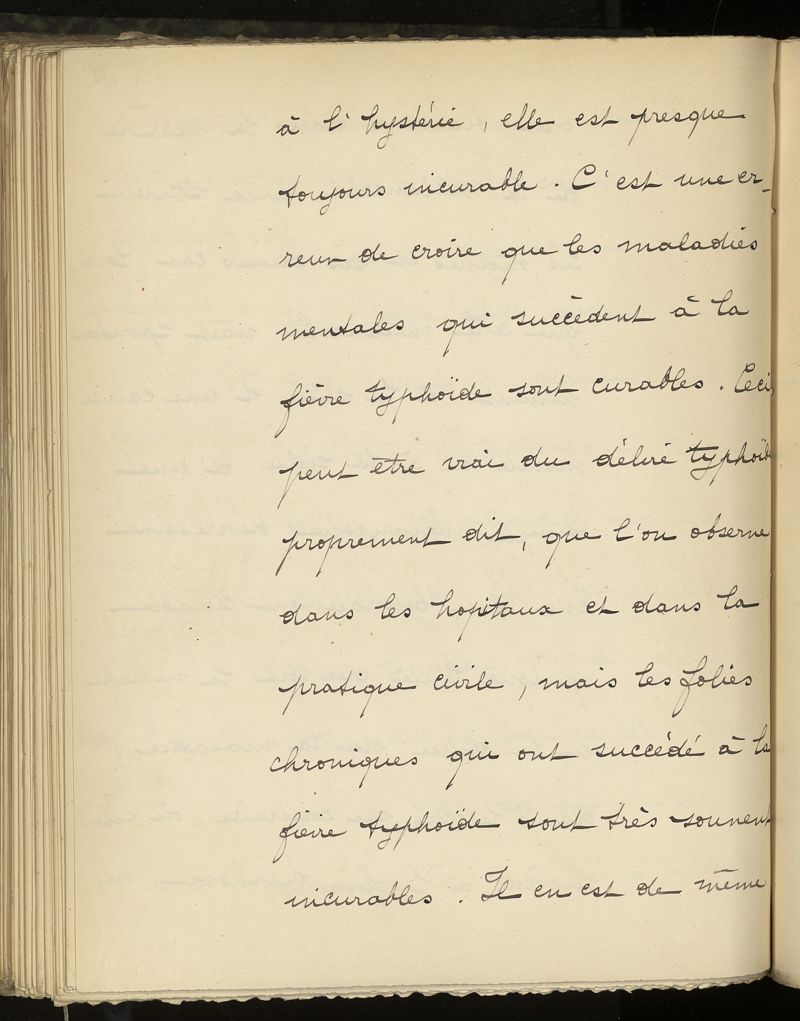 à l'hystérie, elle est presque
toujours incurable. C'est une er-
reur de croire que les maladies
mentales qui succèdent à la
fièvre typhoïde sont curables. Ceci
peut etre vrai du délire typhoïde
proprement dit, que l'on observe
dans les hopitaux et dans la
pratique civile, mais les folies
chroniques qui ont succédé à la
fièvre typhoïde sont très souvent
incurables. Il en est de même